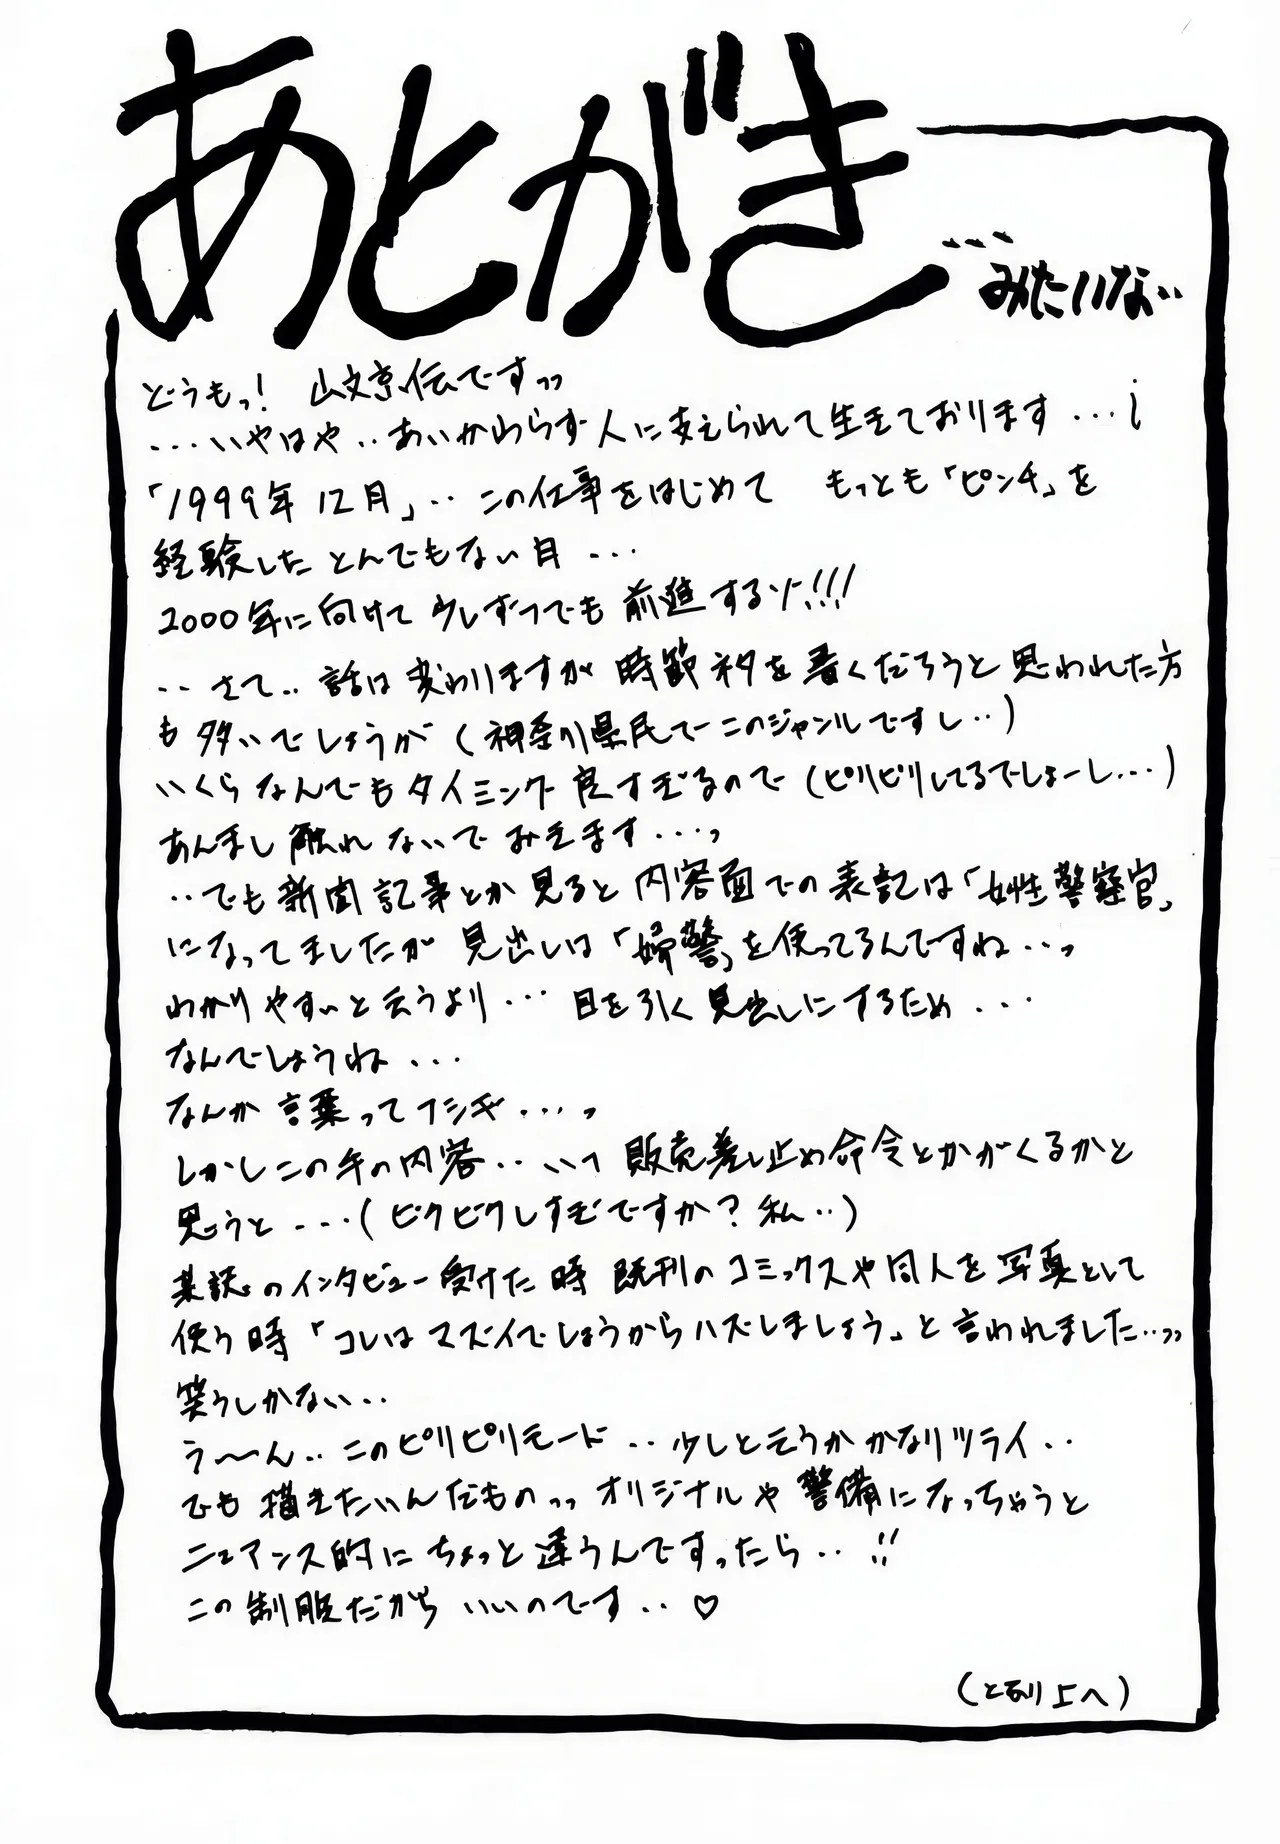 あとがき
…みたいな‥
どうもっ! 山文京伝ですッッ
…いやはや‥あいかわらず人に支えられて生きております…
「1999年12月」‥この仕事をはじめて もっとも「ピンチ」を
経験した とんでもない月…
2000年に向けて 少しずつでも 前進するゾ!!!
‥さて‥話は変わりますが 時節ネタを書くだろうと思われた方
も多いでしょうが(神奈川県民でこのジャンルですし‥)
いくらなんでもタイミング良すぎるので(ピリピリしてるでしょーし…)
あんまし触れないでおきます…っ
‥でも新聞記事とか見ると内容面での表記は「女性警察官」
になってましたが 見出しは「婦警」を使ってるんですね‥っ
わかりやすいと云うより…目を引く見出しにするため…
なんでしょうね…
なんか言葉ってフシギ…っ
しかしこの本の内容‥いつ販売差し止め命令とかがくるかと
思うと…(ビクビクしすぎですか?私‥)
某誌のインタビュー受けた時 既刊のコミックスや同人を写真として
使う時「コレはマズイでしょうからハズしましょう」と言われました‥ッッ
笑うしかない‥
う〜〜ん‥このピリピリモード‥少しと云うかかなりツライ‥
でも描きたいんだものッッ オリジナルや警備になっちゃうと
ニュアンス的にちょっと違うんですったら‥!!
この制服だから いいのです‥♡
(となり上へ)